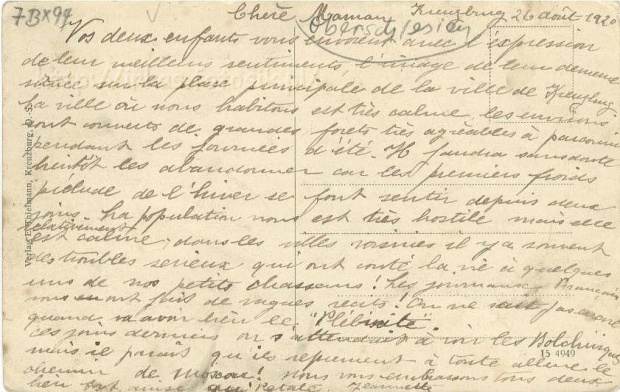 7B x 97
Chère Maman Kreuzburg 26 août 1920
Oberschlesien
Vos deux enfants vous envoient avec l'expression
de leur meilleurs sentiments, l'image de leur demeure
située sur la place principale de la ville de Kreuzburg
La ville où nous habitons est très calme, les environs
sont couverts de grandes forêts très agréables à parcourir
pendant les journées d'été. Il faudra sans doute
bientôt les abandonner car les premiers froids
prélude de l'hiver se font sentir depuis deux
jours. La population nous est très hostile mais elle
est relativement calme; dans les villes voisines il y a souvent
des troubles sérieux qui ont coûté la vie à quelques
uns de nos petits chasseurs! Les journaux français
vous en ont fait de vagues récits! On ne sait pas encore
quand va avoir lieu le "Plébiscite"
ces jours derniers on s'attendait à voir les Bolcheviques
mais il paraît qu'ils repennent à toute allure le
chemin de Moscou! Nous vous embrassons tous deux
bien fort Jeannette
Verlag E. Thielmann, Kreuzburg, O.-S.
15 4049